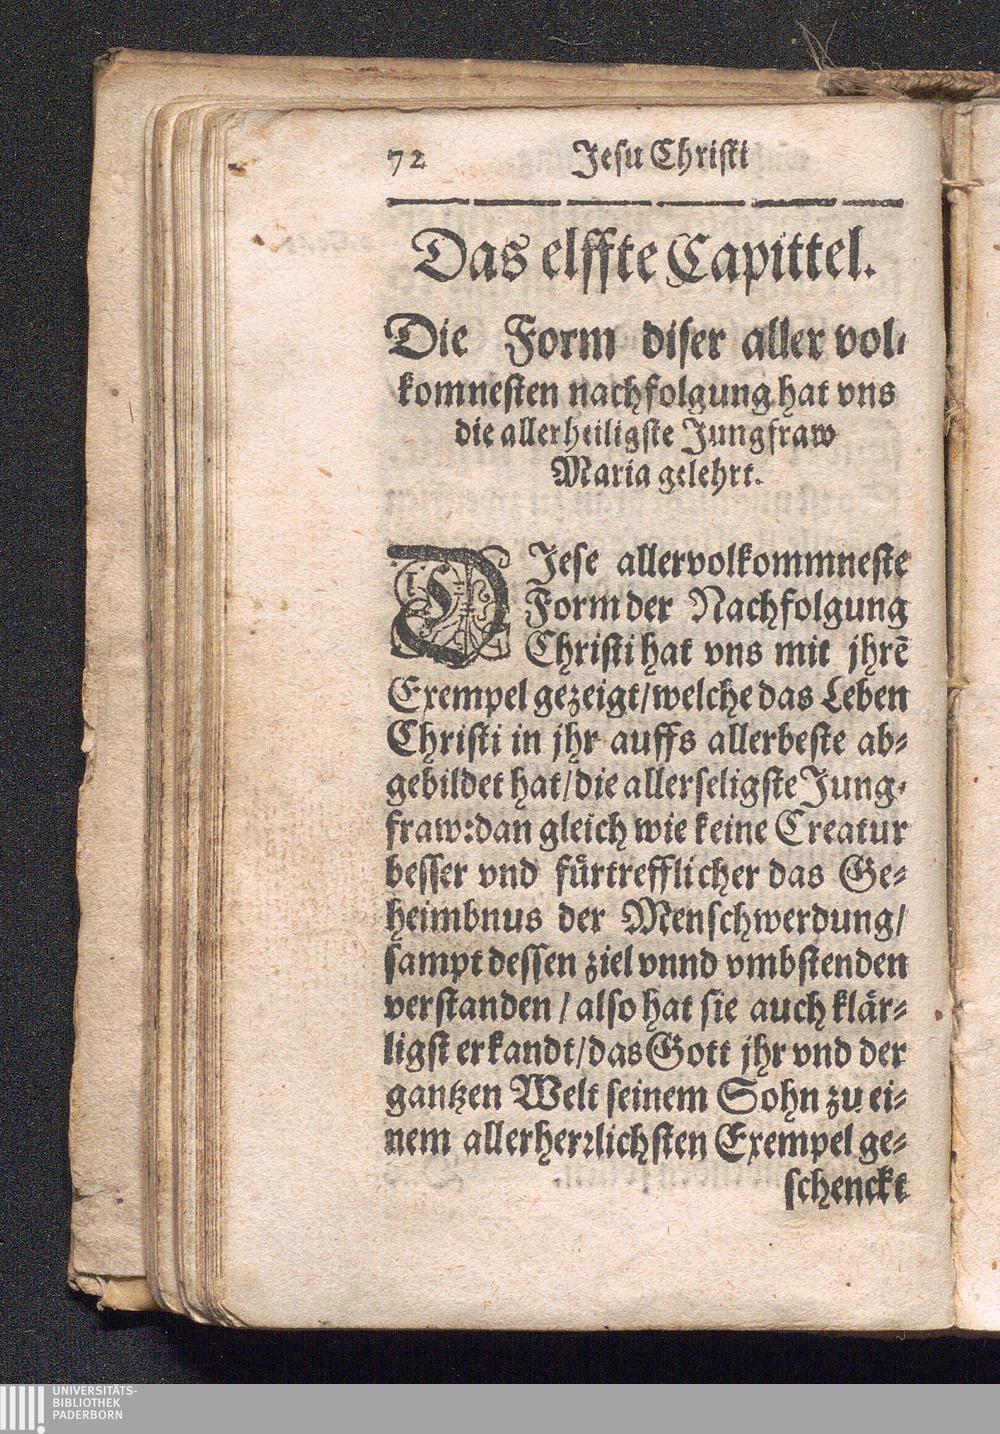 72 Jesu Christi
Das elffte Capittel.
Die Form diser aller vol-
komnesten nachfolgung hat vns
die allerheiligste Jungfraw
Maria gelehrt.
DJese allervolkommneste
Form der Nachfolgung
Christi hat vns mit jhrē
Exempel gezeigt/welche das Leben
Christi in jhr auffs allerbeste ab-
gebildet hat/die allerseligste Jung-
fraw:dan gleich wie keine Creatur
besser vnd fürtrefflicher das Ge-
heimbnus der Menschwerdung/
sampt dessen ziel vnnd vmbstenden
verstanden / also hat sie auch klär-
ligst erkandt/das Gott jhr vnd der
gantzen Welt seinem Sohn zu ei-
nem allerherrlichsten Exempel ge-
schenckt
UNIVERSITÄTS-
BIBLIOTHEK
PADERBORN